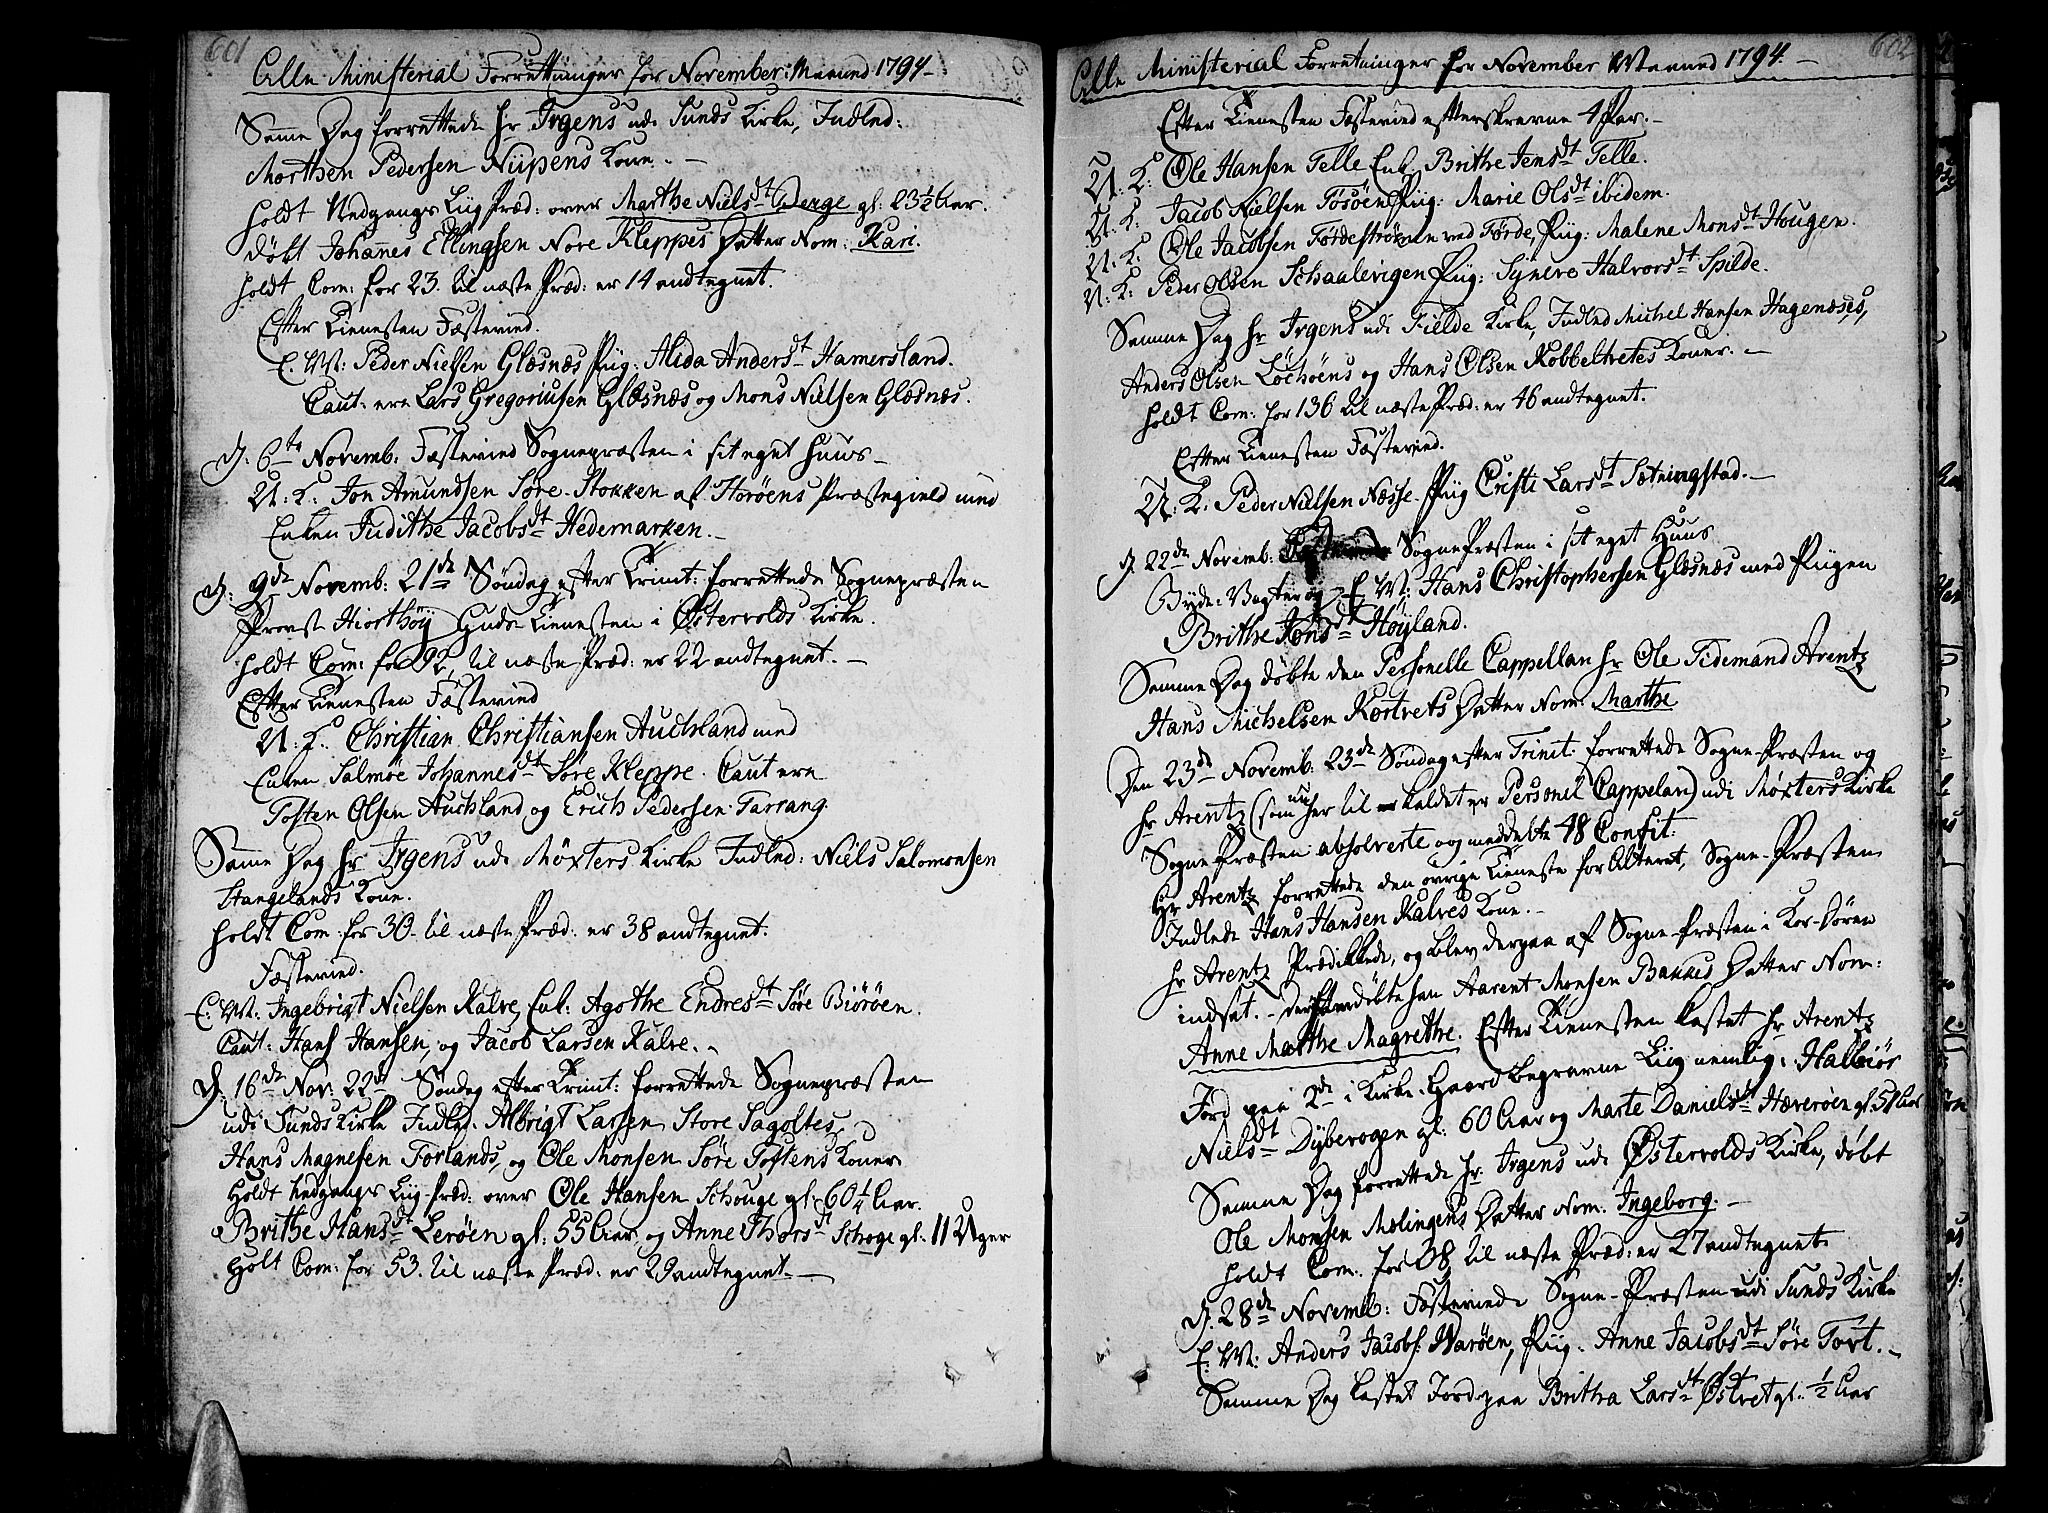 601
Alle Ministerial Forretninger for November Maaned 1794 –
Samme Dag forrettede hr Irgens udi Sunds Kirke, Indled:
Morthen Pedersen Nüpens Kone. –
holdt Nedgangs Liig Præd: over Marthe Nielsdt gl: 23½ Aar.
døbt Johannes Ellingsen Nore Kleppes Datter Nom: Kari.
holdt Com: for 23. til næste Præd: er 14 andtegnet.
Efter Tienesten Fæstevied.
E. M: Peder Nielsen Glæsnæs Piig: Alida Andersdt Hamersland.
Caut: ere Lars Gregoriusen Glæsnæs og Mons Nielsen Glæsnæs.
D. 6te Novemb: Fæstevied Sognepræsten i sit eget Huus –
U: K. Jon Amundsen Søre Stokken af Storøens Præstegield med
Enken Judithe Jacobsdt Hedemarken. –
D. 9de Novemb: 21de Søndag efter Trinit: forrettede Sognepræsten
Provst Hiorthöy Guds Tienesten i Østervolds Kirke.
holdt Com: for 92, til næste Præd: er 22 andtegnet. –
Efter Tienesten Fæstevied
U. K. Christian Christiansen Auchland med
Enken Salmøe Johannesdt Søre Kleppe. Caut ere
Tosten Olsen Auchland og Erich Pedersen Tarrang
Samme Dag hr Irgens udi Møxters Kirke Indled: Niels Salomonsen
Stangelands Kone.
holdt Com: for 30. til næste Præd: er 38 andtegnet.
Fæstevied.
E. M: Ingebrigt Nielsen Kalve, Enk: Agothe Endresdt Søre Biørøen.
Caut: Hans Hansen, og Jacob Larsen Kalve. –
D: 16de Nov: 22de Søndag efter Trinit: forrettede Sognepræsten
udi Sunds Kirke Indled: Albrigt Larsen Store Sagoltes,
Hans Magnesen Forlands, og Ole Monsen Søre Toftens Koner
Holdt Nedgangs Liig-Præd: over Ole Hansen Schouge gl: 60¼ Aar.
Brithe Hansdt Lerøen gl: 55 Aar og Anne Thorsdt Schoge gl. 11 Uger
Holt Com: for 53. til næste Præd: er 29 andtegnet. –
602
Alle Ministerial Forretninger for November Maaned 1794. –
Efter Tienesten Fæstevied efterskrevne 4 Par. –
U. K: Ole Hansen Telle Enk: Brithe Jensdt Telle.
U. K. Jacob Nielsen Tosöen Piig: Marie Olsdt ibidem.
U. K. Ole Jacobsen Fördeströmen ved Förde, Piig: Malene Monsdt Hougen.
U: K: Peder Olsen Schaalevigen Piig: Syneve Halvorsdt Spilde.
Samme Dag hr Irgens udi Fielde Kirke, Indled Michel Hansen Hagenæses,
Anders Olsen Löchöens og Hans Olsen Kobbeltvetes Koner. –
holdt Com: for 136 til næste Præd: er 46 andtegnet.
Efter Tienesten Fæstevied.
U. K: Peder Nielsen Næsse Piig Cristi Larsdt Sætningstad. –
D. 22de Novemb: Sogne Præsten i sit eget Huus
E M: Hans Christophersen Glæsnæs med Piigen
Brithe Jonsdt Höyland.
Samme Dag døbte den Personelle Cappellan hr Ole Tidemand Arentz
Hans Michelsen Kortvets Datter Nom: Marthe
Den 23de Novemb: 23de Søndag efter Trinit: forrettede Sogne-Præsten og
hr Arentz (som nu her til kaldet er Personel Cappelan) udi Møxters Kirke
Sogne-Præsten absolverte og meddelte 48 Confit:
Hr Arentz forrettede den øvrige Tieneste for Alteret, Sogne-Præsten
Indlede Hans Hansen Kalves Kone. –
hr Arentz Prædikkede, og blev derpaa af Sogne-Præsten i Kor-Dören
indsat. – døbte han Aarent Monsen Bakkes Datter Nom:
Anne Marthe Magrethe. Efter Tienesten kastet hr Arentz
Jord paa 2de i Kirke-Gaard begravne Liig nemlig: Halbiör
Nielsdt Dybevogen gl: 60 Aar og Marte Danielsdt Hæverøen gl. 51 Aar
Samme Dag forrettede hr Irgens udi Østervolds Kirke, döbt
Ole Monsen Mælingens Datter Nom. Ingeborg. –
holdt Com: for 38 til næste Præd: er 27 andtegnet.
D. 28de Novemb: Fæsteviede Sogne-Præsten udi Sunds Kirke
E. M: Anders Jacobs: Warøen, Piig. Anne Jacobsdt Søre Tovt. –
Samme Dag kastet Jord paa Brithra Larsdt Østvet gl: ½ Aar